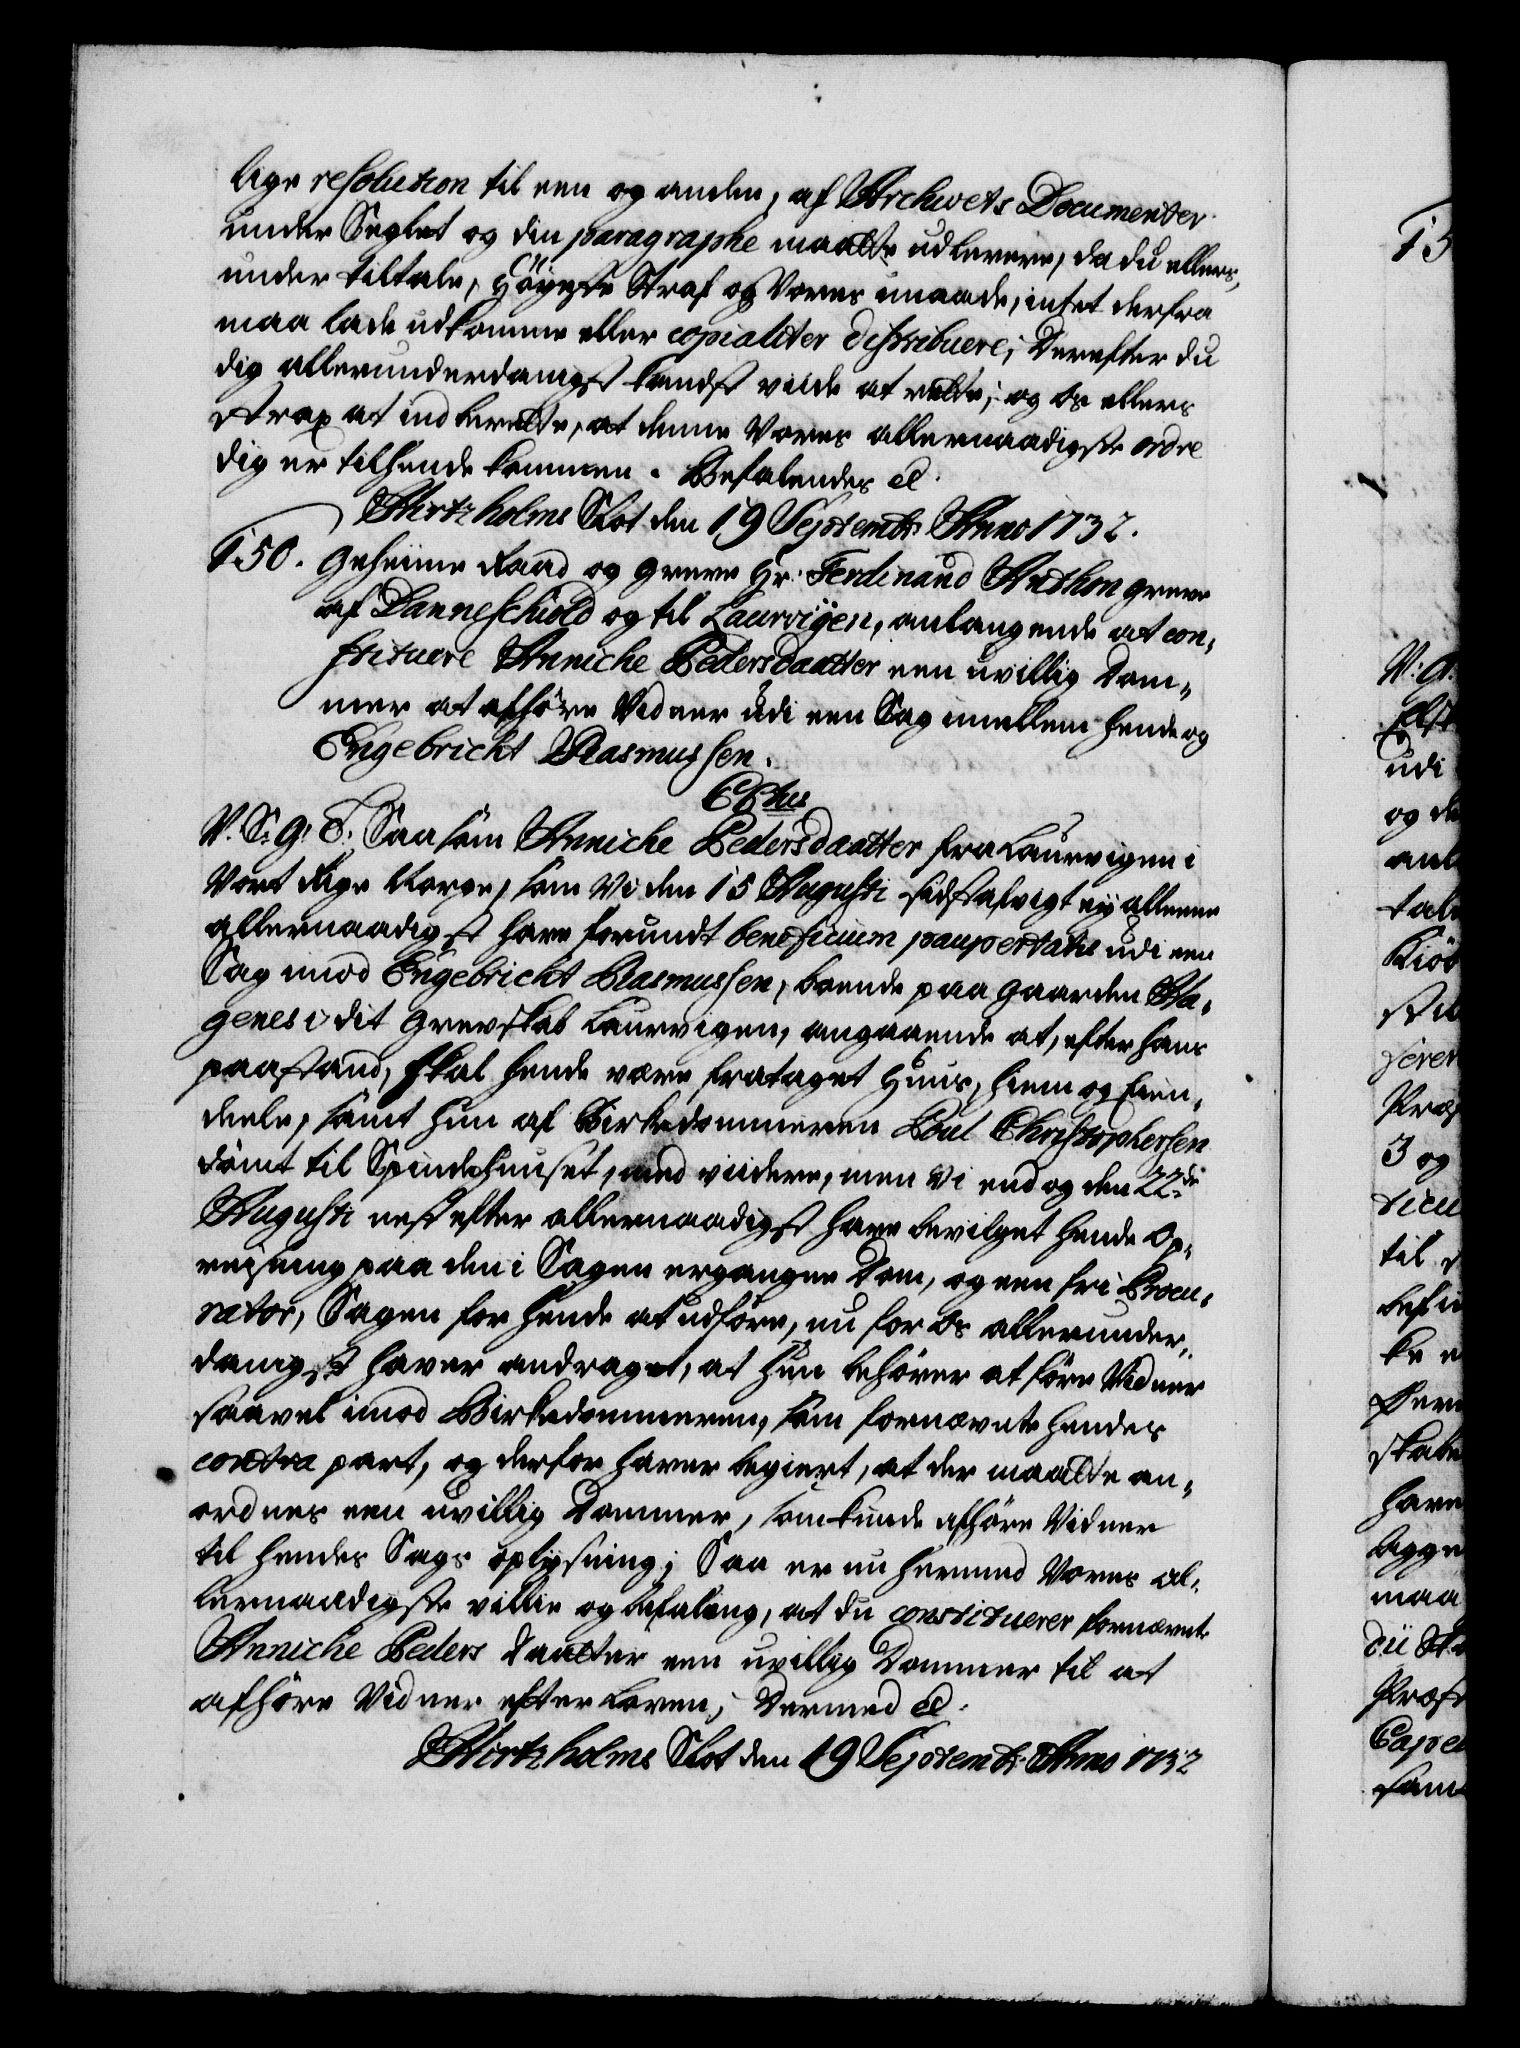 lige resolution til een og anden, af Archivets Documenter
under Seglet og din paragraphe maatte udlevere, da du ellers,
under tiltale, Høyeste Straf og Vores unaade, intet derfra
maa lade udkomme eller copialiter distribuere; Derefter du
dig allerunderdanigst kandst viide at rette; og os ellers
strax at indberette, at denne Vores allernaadigste ordre
dig er tilhende kommen. Befalendes etc.
Hirtzholms Slot den 19 Septembr: Anno 1732.
150. Geheime Raad og Greve Hr: Ferdinand Anthon Greve
af Danneschiold og til Laurvigen, anlangende at con-
stituere Anniche Pedersdaatter een uvillig Dom-
mer at afhøre Vidner udi een Sag imellem hende og
Engebricht Rasmussen.
C 6tus
V. S. G: T. Saasom Anniche Pedersdaatter fra Laurvigen i
Vort Rige Norge, som Vi den 15 Augusti sidst afvigt ey alleene
allernaadigst have forundt beneficium paupertatis udi een
Sag imod Engebricht Rasmussen, boende paa Gaarden Ha-
genes i dit Grevskab Laurvigen, angaaende at, efter hans
paastand, skal hende være frataget Huus, hiem og Eien-
deele, samt hun af Birkedommeren Poul Christophersen
dømt til Spindehuuset, med viidere, men Vi end og den 22de
Augusti nest efter allernaadigst have bevilget hende Op-
reisning paa den i Sagen ergangne Dom, og een fri Procu-
rator, Sagen for hende at udføre, nu for os allerunder-
danigst haver andraget, at hun behøver at føre Vidner
saavel imod Birkedommeren, som fornævnte hendes
contra part, og derfor haver begiert, at der maatte an-
ordnes een uvillig Dommer, som kunde afhøre Vidner
til hendes Sags oplysning; Saa er nu hermed Vores al-
lernaadigste villie og befaling, at du constituerer fornævnte
Anniche Peders Daatter een uvillig Dommer til at
afhøre Vidner efter Loven; Dermed etc.
Hirtzholms Slot den 19 Septembr: Anno 1732